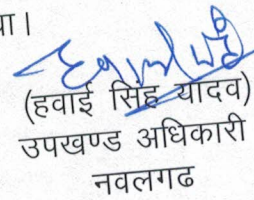 या।
(हवाई सिंह यादव)
उपखण्ड अधिकारी
नवलगढ